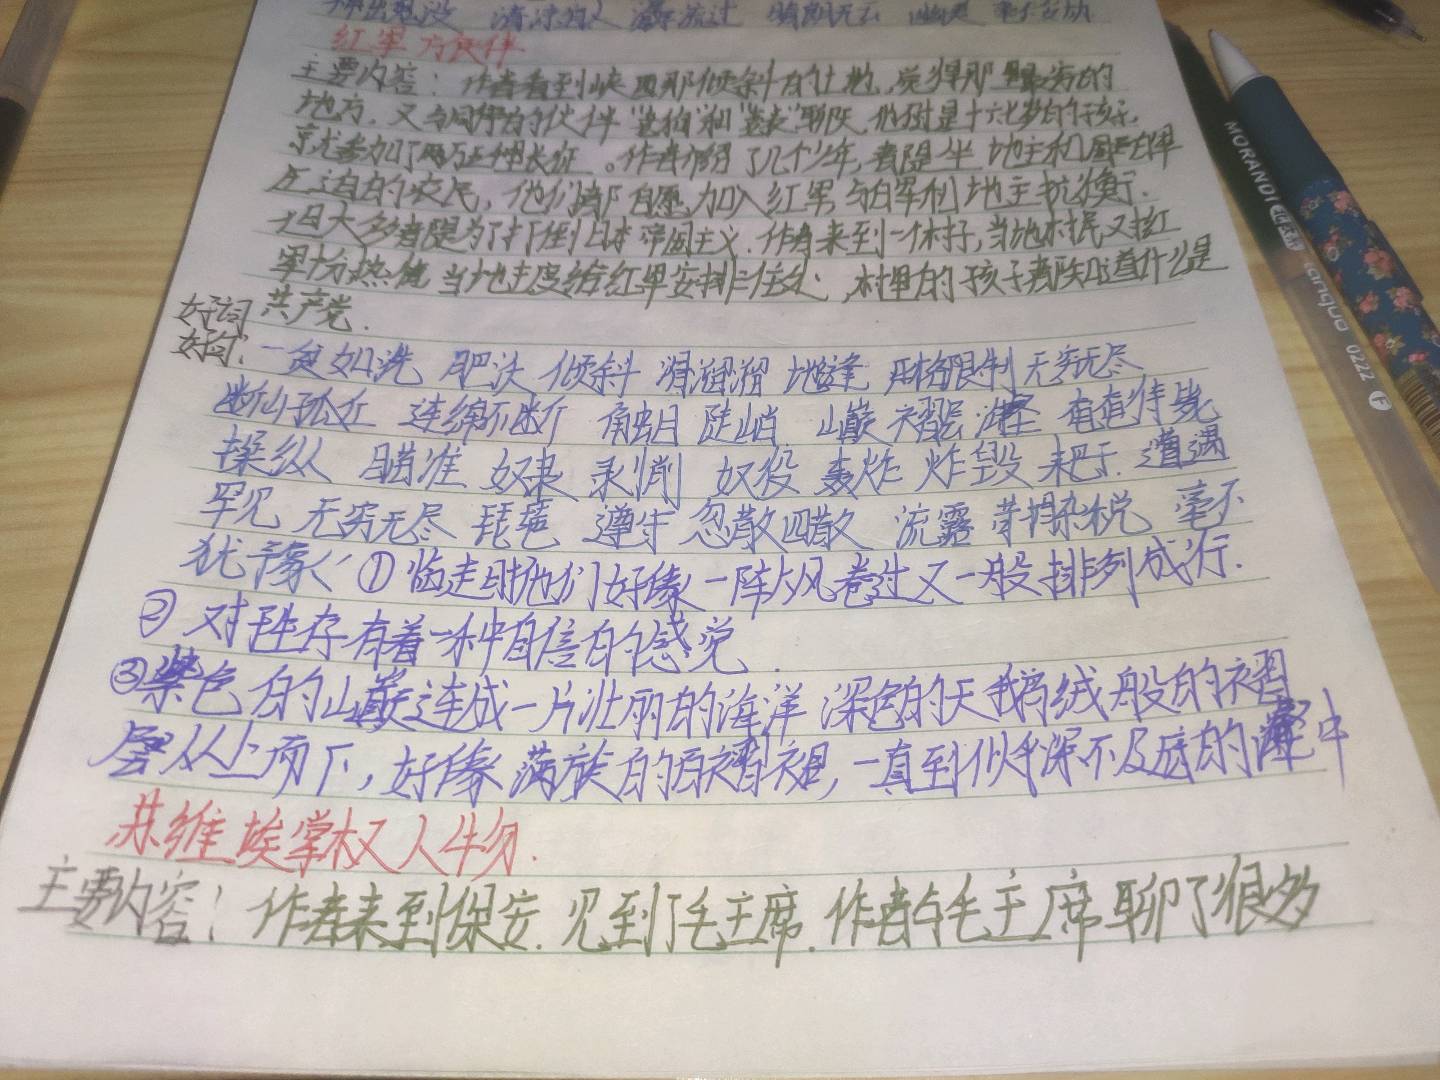 神出鬼没 清
红军旅伴
主要内容：作者看到峡西那倾斜的土地，觉得那是最穷的
地方，又令同伴的伙伴"老狗"和"老表"聊天，他们才是十六七岁的孩子，
就参加了两万五千里长征。作者介绍了几个少年，都是坐地主和国民党军
压迫的农民，他们都自愿加入红军与白军和地主抗衡。
但大多都是为了打倒日本帝国主义。作者来到一个村子，当地村民又对红
军十分热情，当地主席给红军安排住处，村里的孩子都知道什么是
好词 共产党．
好句：一贫如洗 肥沃 倾斜 滑溜溜 地窖 财务限制 无穷无尽
断仙孤丘 连绵不断 角蛆 陡峭 山巅 褶层 有有待毙
操纵 瞄准 奴隶 录悄 奴役 轰炸 炸毁 耙子 遭遇
罕见 无穷无尽 琵琶 遵守 忽散四散 流露 苛捐杂税 毫不
犹豫 ①临走时他们好像一阵大风卷过又一般排列成行．
② 对于生存有着一种自信的感觉．
③紫色的山巅连成一片壮丽的海洋 深色的天鹅绒般的褶
层从上而下，好像满族的百褶裙，一直到似乎深不及底的壑中
苏维埃掌权人物．
主要内容：作者来到保安．见到了毛主席．作者与毛主席聊了很多
MORANDI
Tanquo 0222